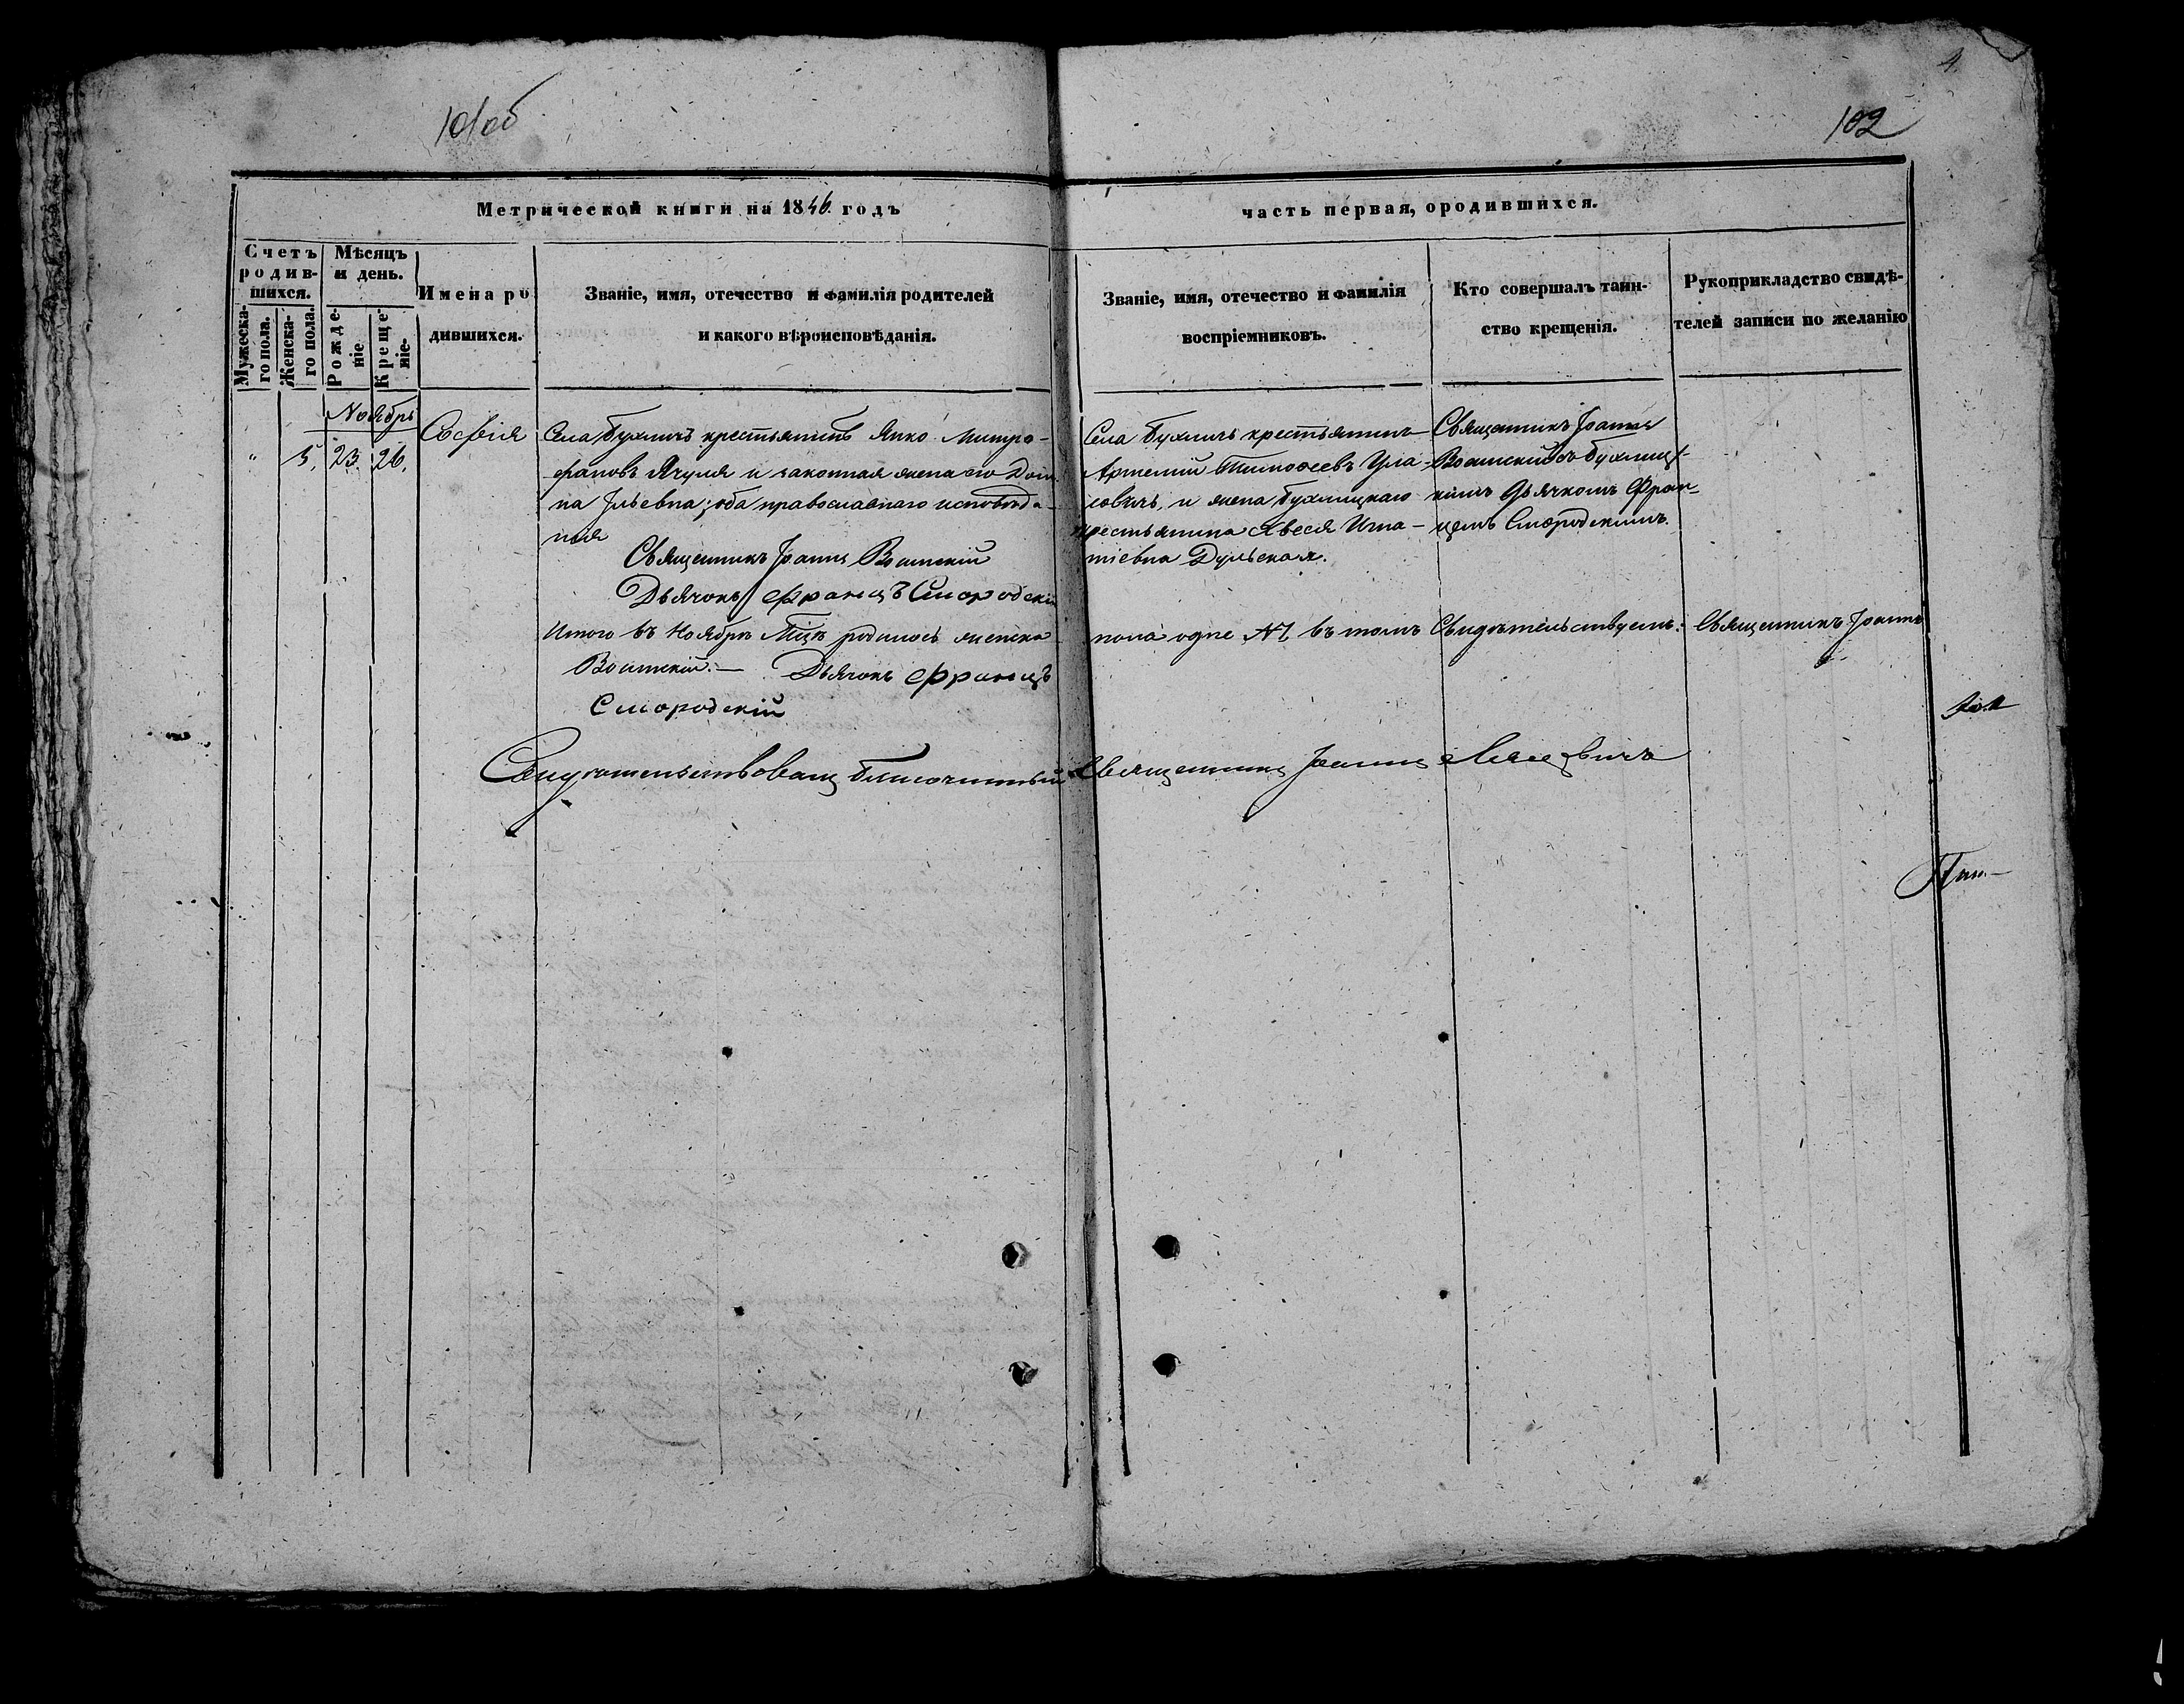 4.
101об
102
Метрической книги на 1846. годъ
часть первая, ородившихся.
Счетъ родив-шихся.
Мѣсяцъ и день.
Мужеска-го пола.
Женска-го пола.
Рожде-ніе
Креще-ніе.
Имена ро дившихся.
Званіе, имя, отечество и фамилія родителей
и какого вѣроисповѣданія.
Званіе, имя, отечество и фамилія
воспріемниковъ.
Кто совершалъ таин-
ство крещенія.
Рукоприкладство свидѣ-
телей записи по желанію
Ноябрь
" 5. 23. 26.
Софія
Села Бухличъ крестьянинъ Янко Митро-
фановъ Ячуля и законная жена его Дом
на Ільевна; оба православнаго исповѣда-
нія
Священникъ Іоаннъ
Дьячокъ Францъ Смородскій
Села Бухличъ крестьянинъ
Артемій Тимоѳеевъ
и жена Бухлицкаго
крестьянина Игна-
тіевна Дульская.
Священникъ Іоаннъ
съ Бухлиц-
кимъ дьячкомъ Фран-
цемъ Смородскимъ.
Итого въ Ноябрѣ Мцѣ родилось женска
пола одне №1. въ томъ Свидѣтельствуемъ: Священникъ Іоаннъ
Дьячокъ Францъ
Смородскій
Свидѣтельствовалъ Благочинный Священникъ Іоаннъ